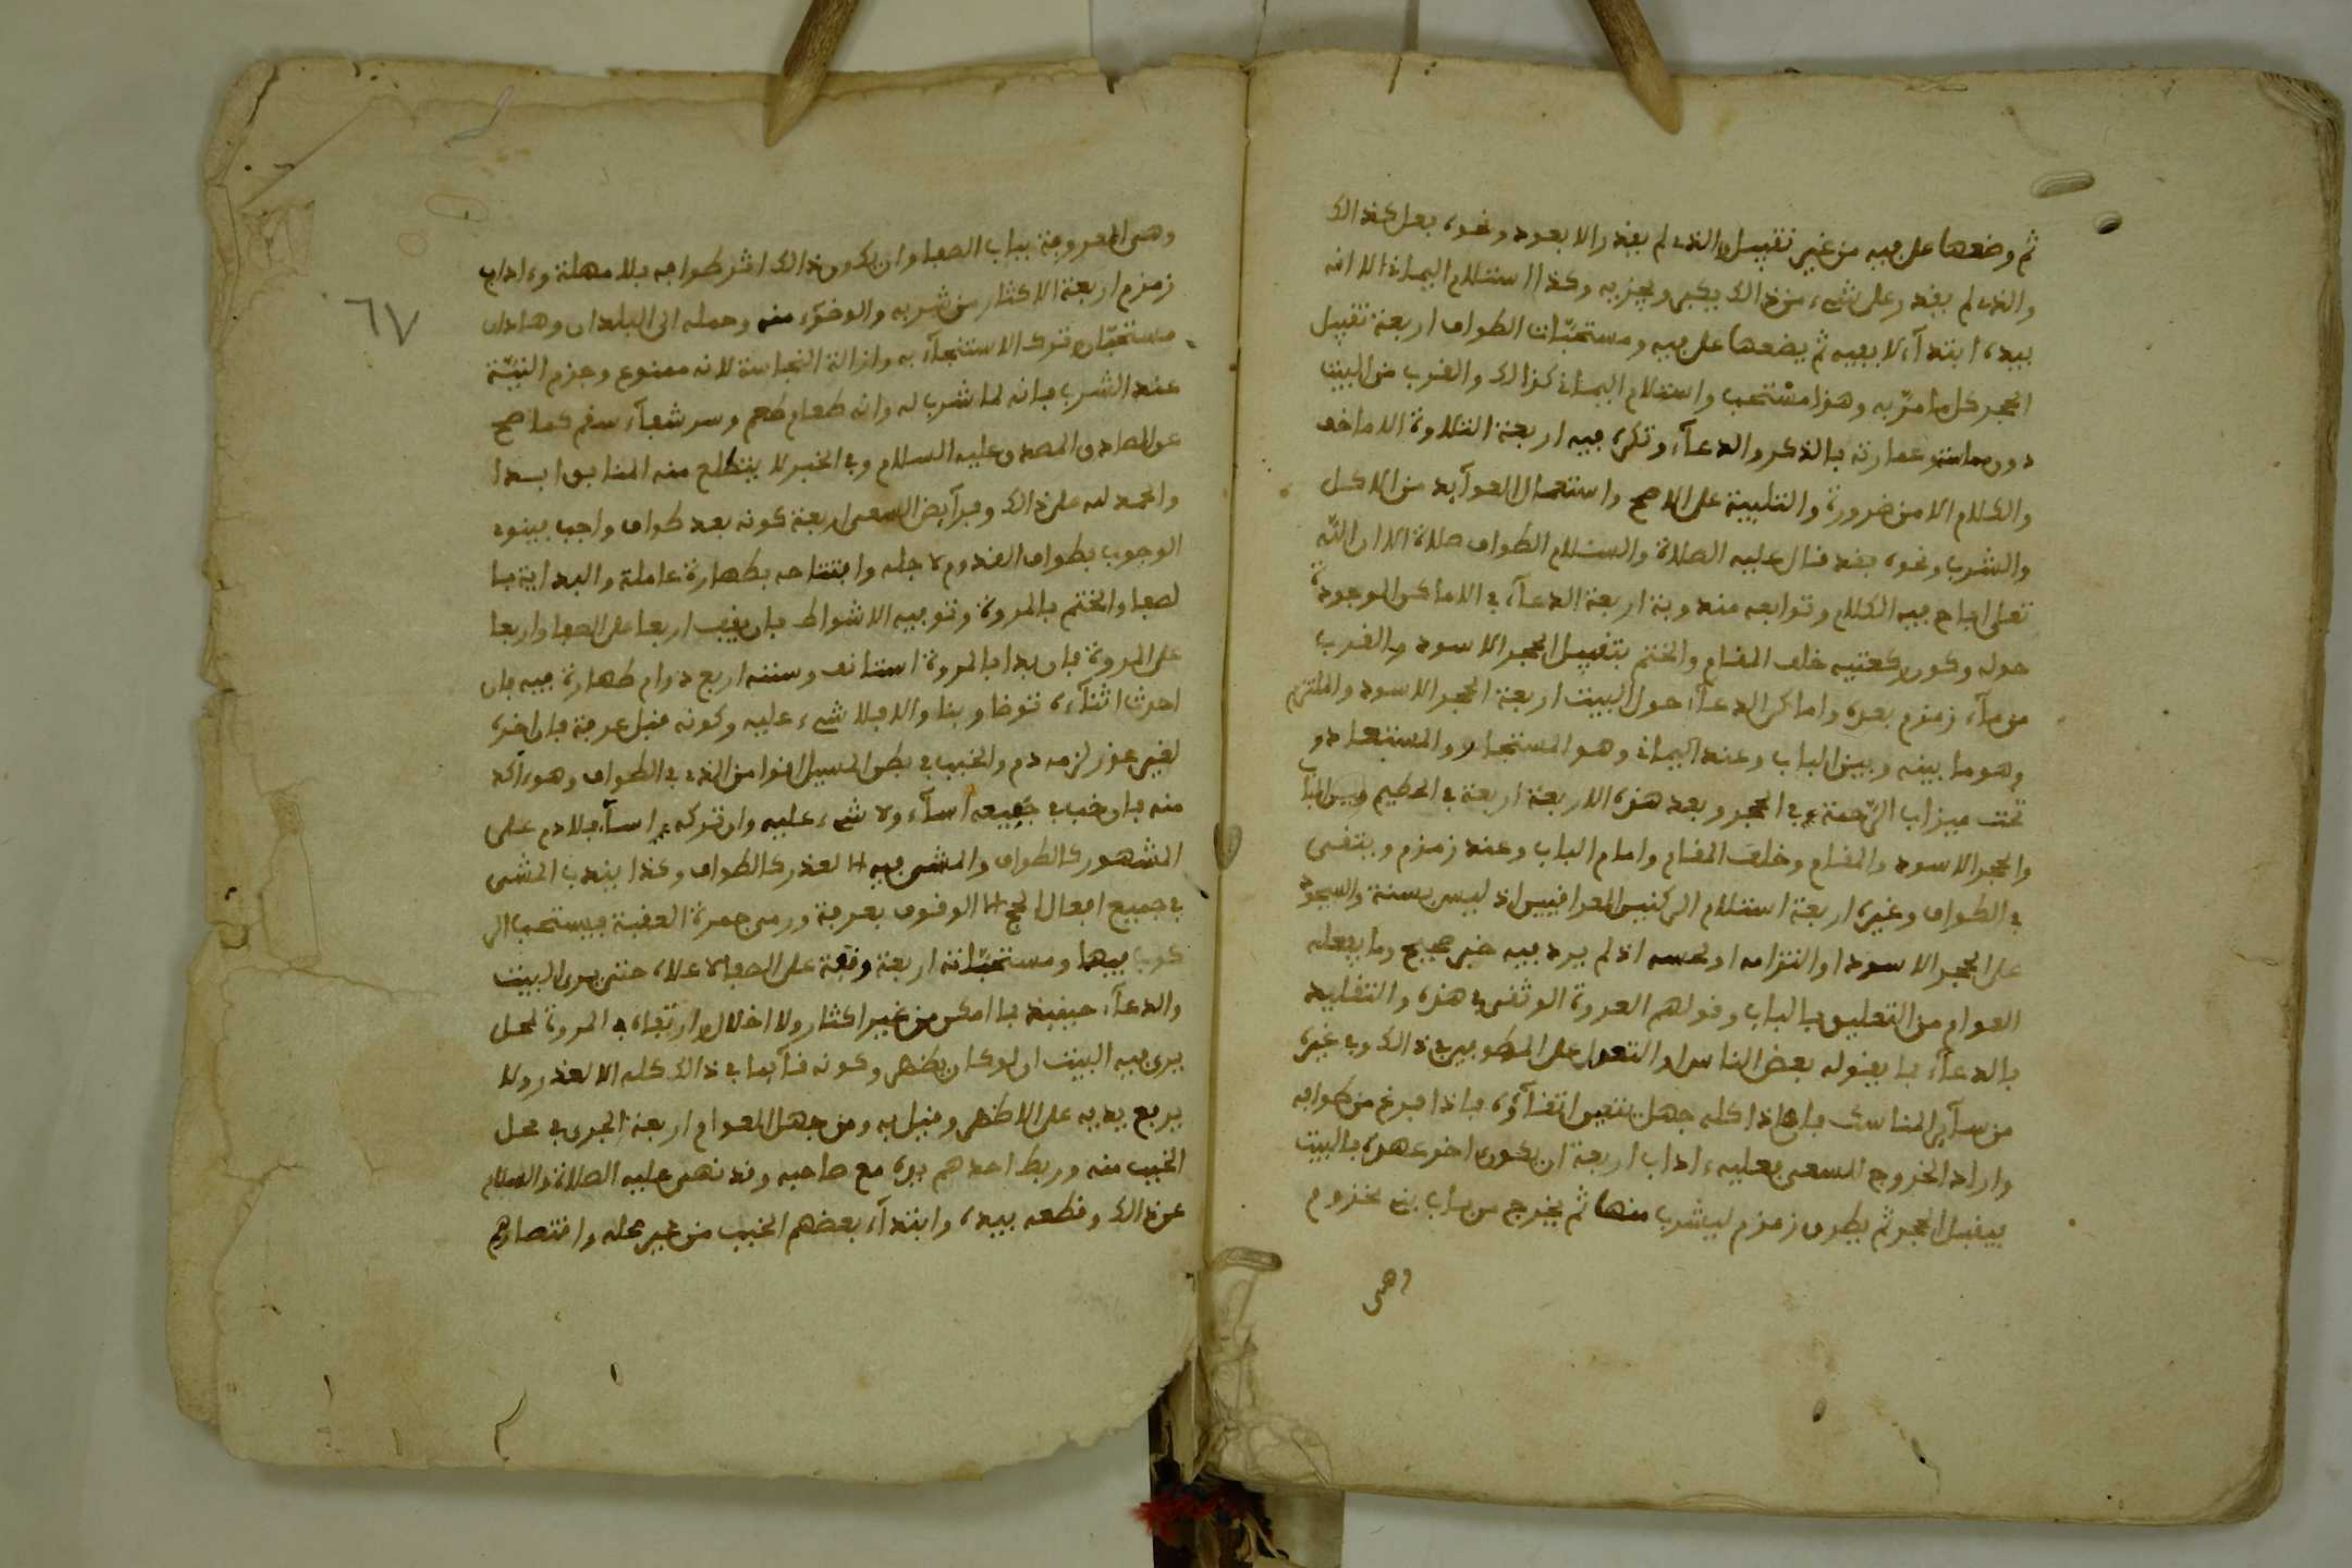 ثم وضعها على فيه من غير تقبيل والذي لم يقدر الا بعود ونحوه يفعل كذالك
والذي لم يقدر على شيء من ذالك يكبر ويجزيه وكذا استلام اليماني الا انه
بيده ابتداء لا بفيه ثم يضعها على فيه ومستحبّات الطواف اربعة تقبيل
الحجر كل ما مرّ به وهذا مستحب واستلام اليماني كذالك والقرب من البيت
دون عمارته بالذكر والدعاء وتكره فيه اربعة التلاوة الا ما خف
والكلام الا من ضرورة والتلبية على الاصح واستعمال العوآيد من الاكل
والشرب ونحوه فقد قال عليه الصلاة والسلام الطواف صلاة الا ان اللّه
تعلى اباح فيه الكلام وتوابعه مندوبة اربعة الدعاء في الاماكن الموجودة
حوله وكون ركعتيه خلف المقام والختم بتقبيل الحجر الاسود والشرب
من ماء زمزم بعده واماكن الدعاء حول البيت اربعة الحجر الاسود والملتزم
وهو ما بينه وبين الباب وعند اليماني وهو المستجار والمستعاذ و
تحت ميزاب الرّحمة في الحجر وبعد هذه الاربعة اربعة في الحطيم وبين الباب
والحجر الاسود والمقام وخلف المقام وامام الباب وعند زمزم ويتقى
في الطواف وغيره اربعة استلام الركنين العراقيين اذ ليس بسنة والسجود
على الحجر الاسود او التزامه او لحسه اذ لم يرد فيه خبر صحيح وما يفعله
العوام من التعليق بالباب وقولهم العروة الوثقى في هذه والتقليد
بالدعاء بما يقوله بعض الناس او التعول على المطوفين في ذالك وفي غيره
من سآير المناسك فان هاذا كله جهل يتعين اتقآؤه فاذا فرغ من طوافه
واراد الخروج للسعي فعليه ءاداب اربعة ان يكون اخر عهده بالبيت
فيقبل الحجر ثم يطرق زمزم ليشرب منها ثم يخرج من باب بني مخزوم
وهي
٦٧
وهى المعروفة بباب الصفا وان يكون ذالك اثر طوافه بلا مهلة وءاداب
زمزم اربعة الاكثار من شربه والوضوء منه وحمله الى البلدان وهاذان
مستحبّان وترك الاستنجاء به وازالة النجاسة لانه ممنوع وجزم النيّة
عند الشرب فانه لما شرب له وانه طعام طعم وسر شفاء سقم كما صح
عن الصادق المصدوق عليه السلام وفي الخبر لا يتضلع منه المنافق ابدا
والحمد لله على ذالك وفرآيض السعي اربعة كونه بعد طواف واجب فينوى
الوجوب بطواف القدوم لاجله وافتتاحه بطهارة عاملة والبداية با
لصفا والختم بالمروة وتوفيه الاشواط فان يقف اربعا على الصفا واربعا
على المروة فان بدا بالمروة استانف وسننه اربع دوام طهارة فيه فان
احدث اثناءه توضا وبنا والا فلا شيء عليه وكونه قبل عرفة فان اخره
لغير عذر لزمه دم والخبب في بطن المسيل اقوا من الذي في الطواف وهو ءاكد
منه فان خب في جميعه اساء ولا شيء عليه وان تركه اساء فلا دم على
المشهور كالطواف والمشي فيه الا لعذر كالطواف وكذا يندب المشي
في جميع افعال الحج الا الوقوف بعرفة ورمي جمرة العقبة فيستحب الر
كوب فيهما ومستحبّاته اربعة وقفة على الصفا لاعلاه حتى يرى البيت
والدعاء حينيذ بما امكن من غير اكثار ولا اخلال وارتقاء في المروة لمحل
يرى فيه البيت ان لو كان يظهر وكونه قآيما في ذالك كله الا لعذر ولا
يرفع يديه على الاظهر وقيل به ومن جهل العوام اربعة الجرى في محل
الخبب منه وربط احدهم يده مع صاحبه وقد نهى عليه الصلاة والسلام
عن ذالك وقطعه بيده وابتداء بعضهم الخبب من غير محله واقتصارهم